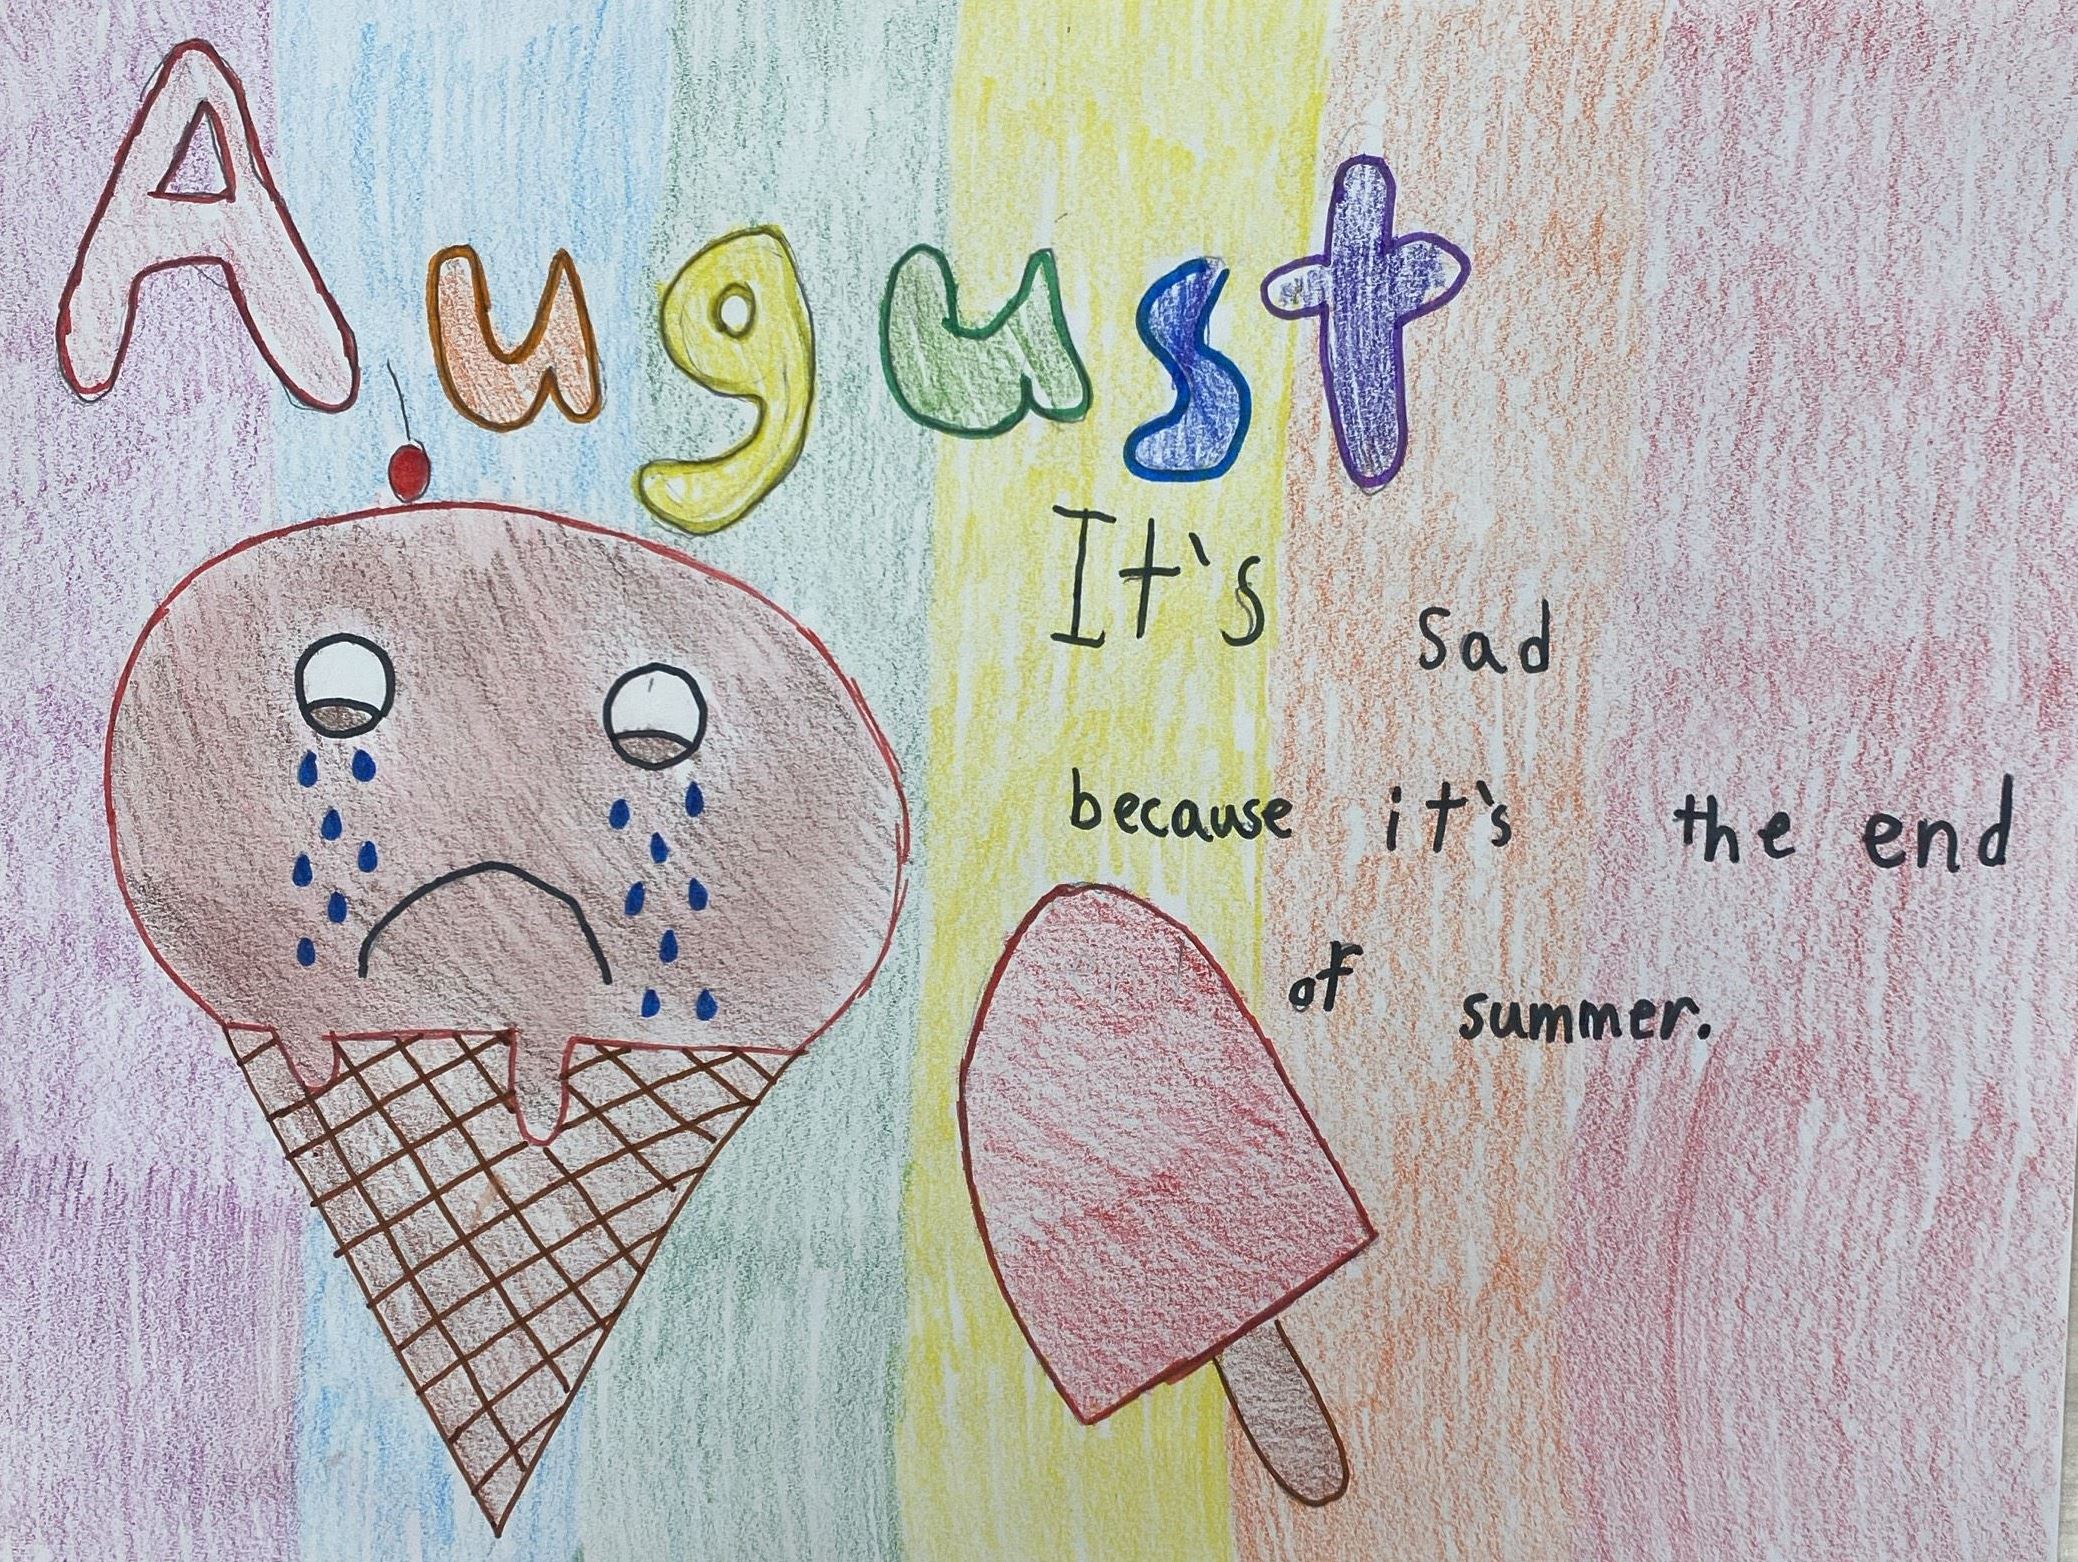 August
It's sad
because it's the end
of summer.